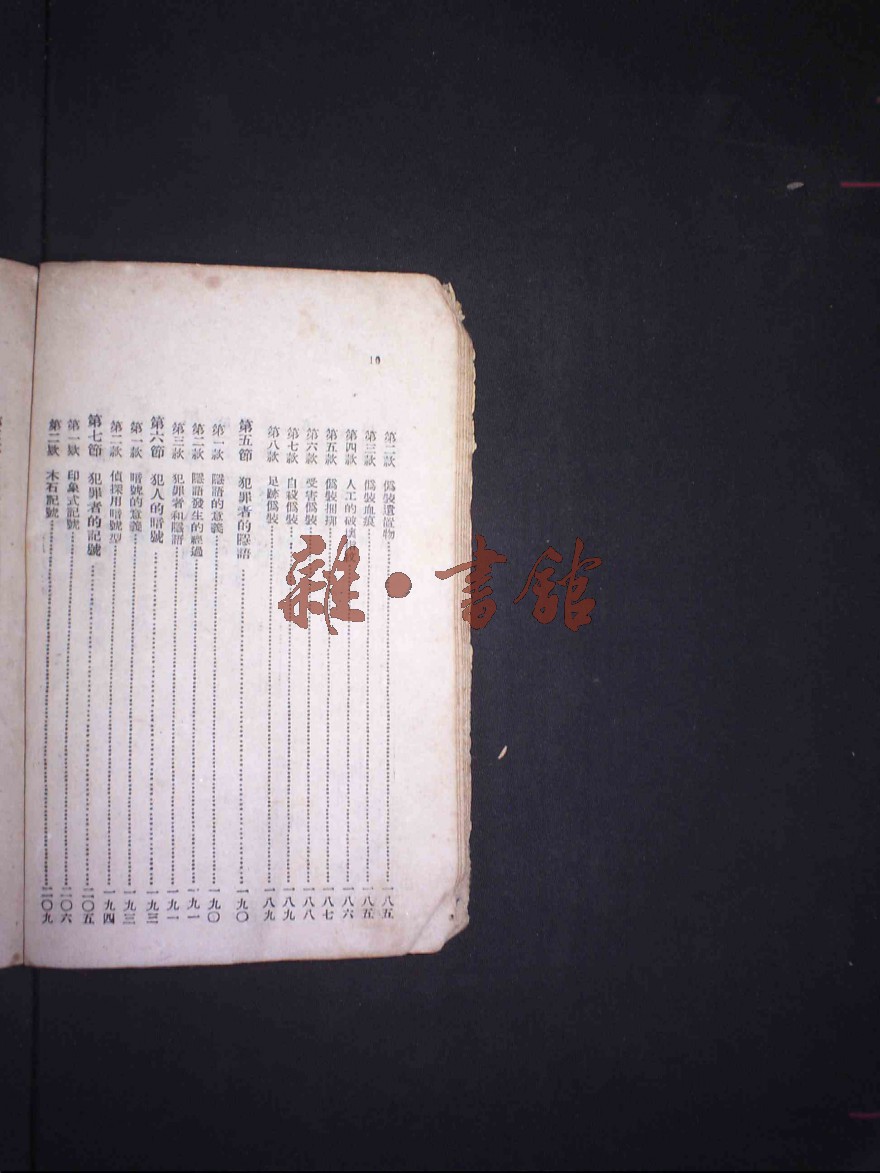 10
第二款 僞裝遺置物 一八五
第三款 僞裝血痕 一八五
第四款 人工的破壞 一八六
第五款 僞裝捆綁 一八七
第六款 受害僞裝 一八八
第七款 自殺僞裝 一八九
第八款 足跡僞裝 一八九
第五節 犯罪者的隱語 一九〇
第一款 隱語的意義 一九〇
第二款 隱語發生的經過 一九一
第三款 犯罪者和隱語 一九一
第六節 犯人的暗號 一九三
第一款 暗號的意義 一九三
第二款 偵探用暗號型 一九四
第七節 犯罪者的記號 二〇五
第一款 印象式記號 二〇六
第二款 木石記號 二〇九
雜·書館